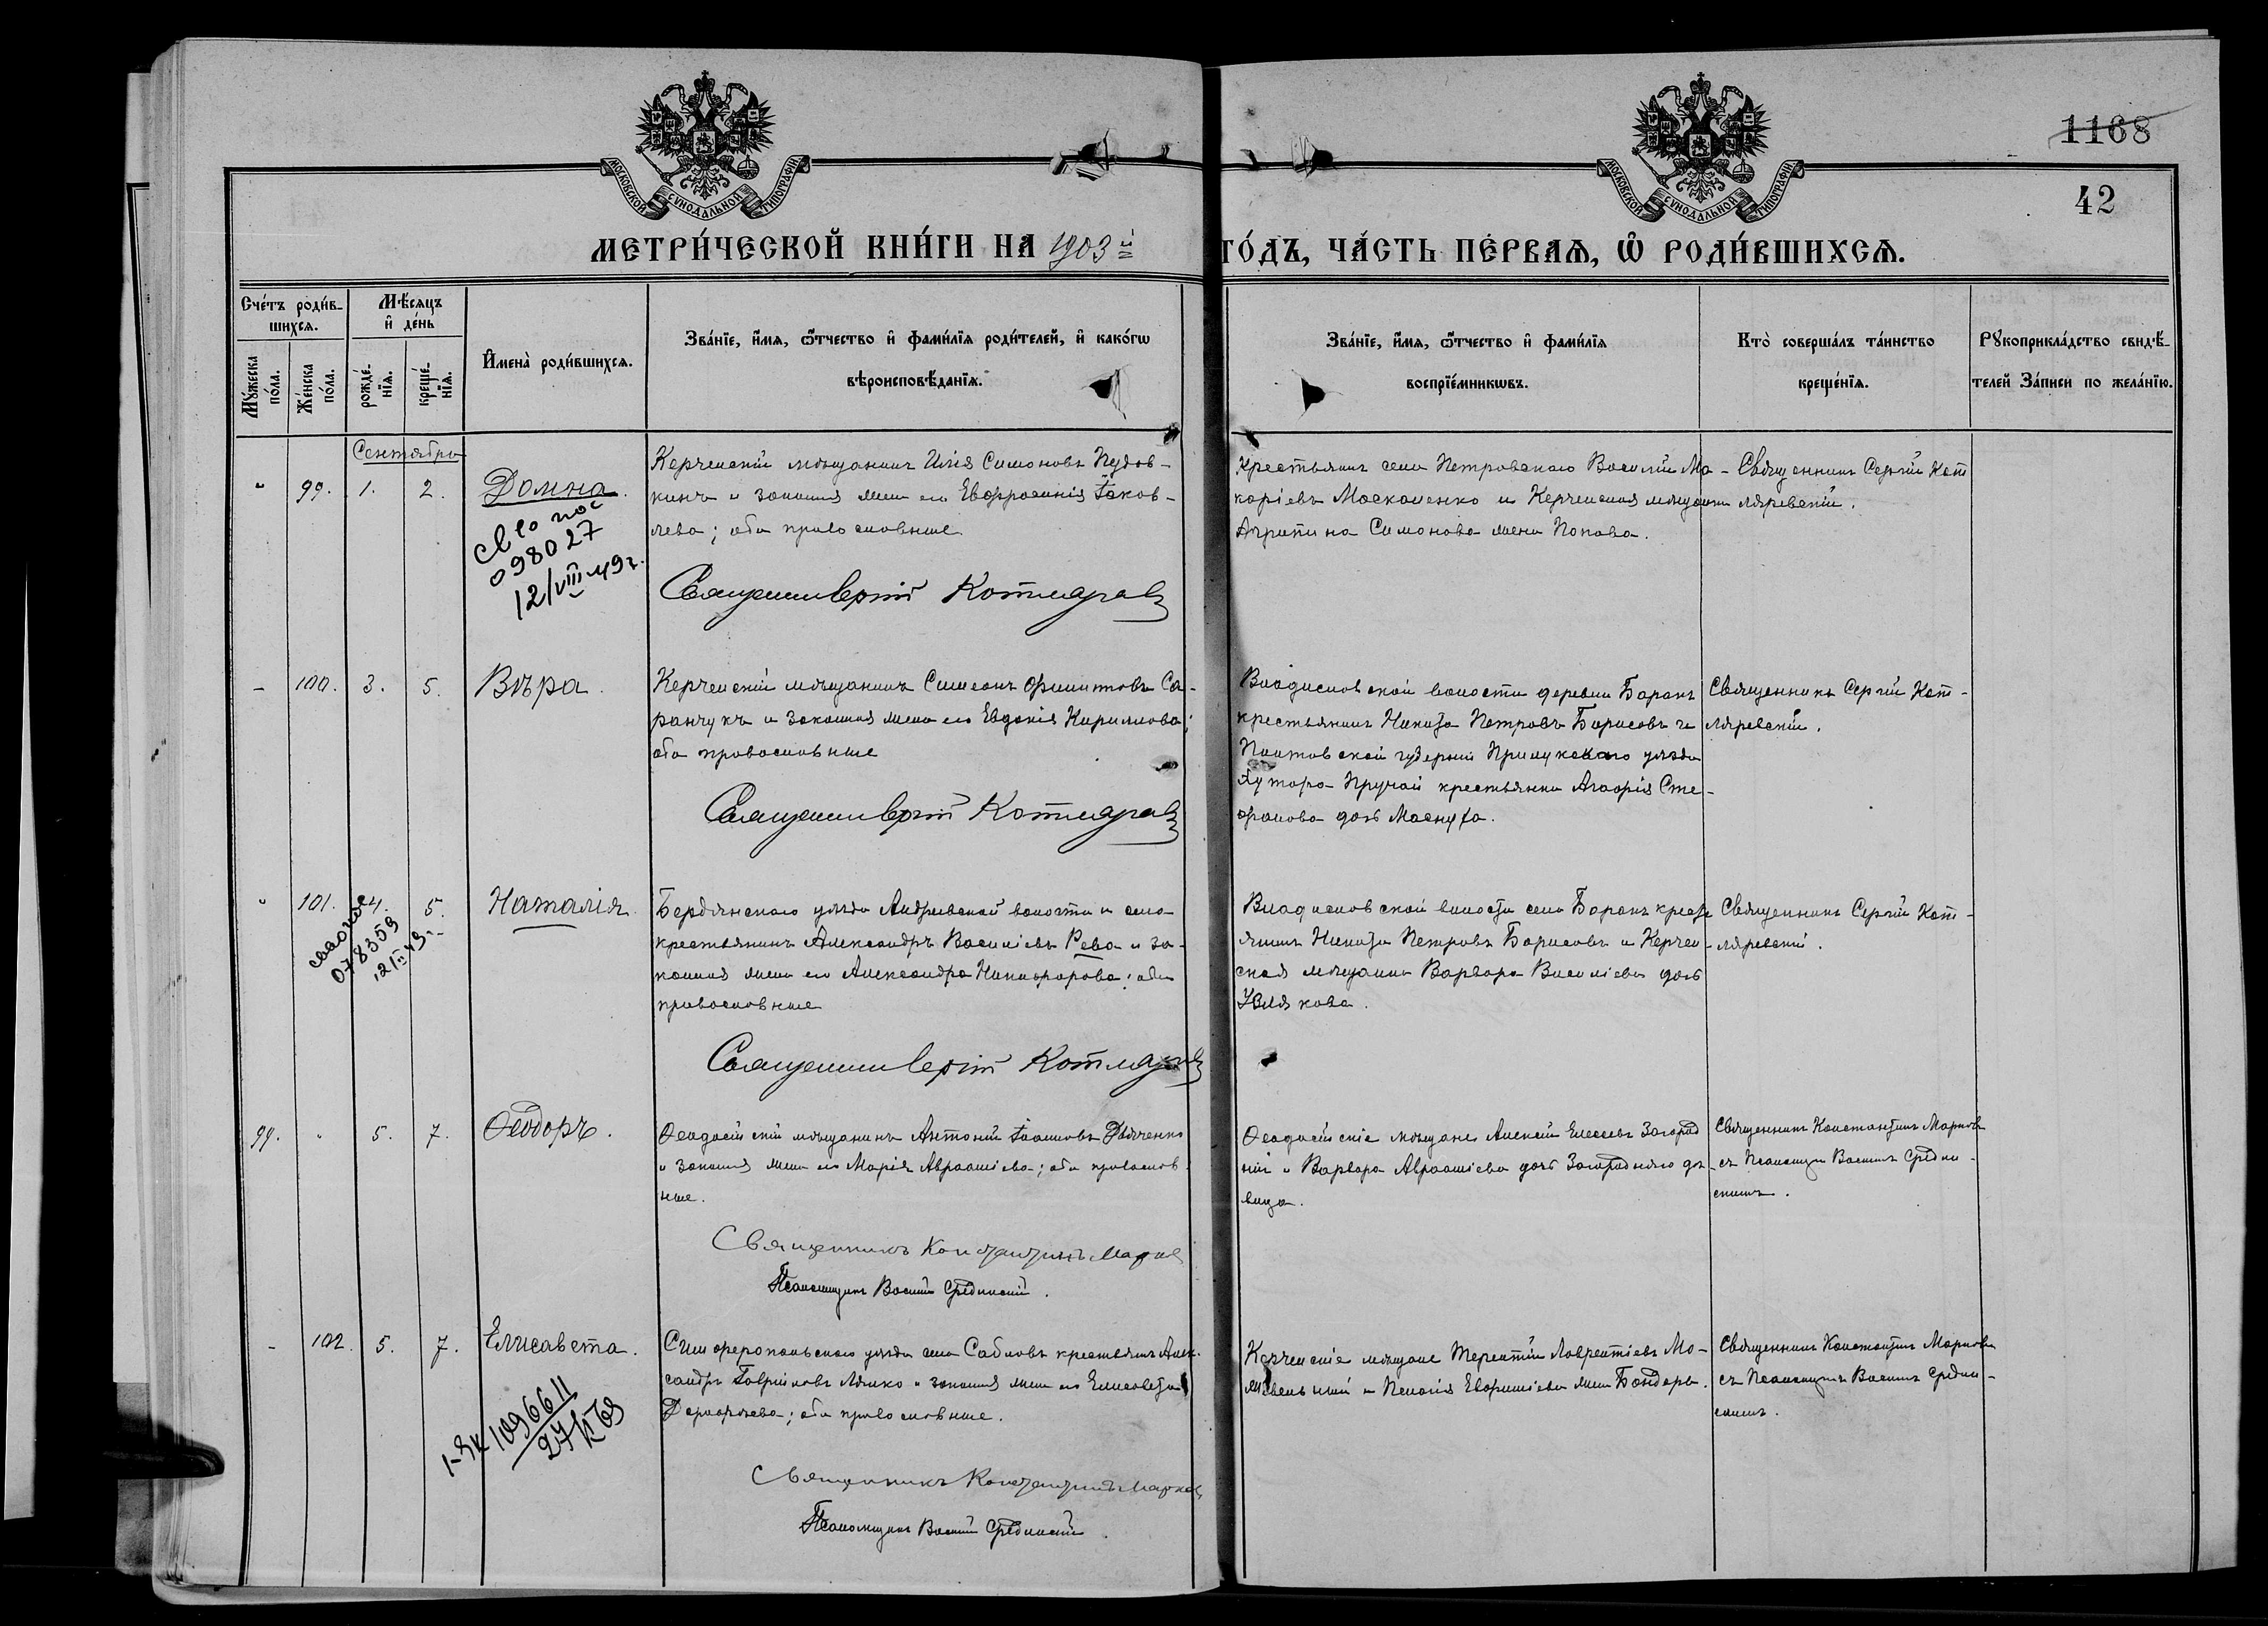 1168
42
МОСКОВСКОЙ СѴНОДАЛЬНОЙ ТИПОГРАФІИ
МОСКОВСКОЙ СѴНОДАЛЬНОЙ ТИПОГРАФІИ
МЕТРИ́ЧЕСКОЙ КНИ́ГИ НА 1903й
ГО́ДЪ, ЧА́СТЬ ПЕ́РВАѦ, Ѽ РОДИ́ВШИХСѦ.
Сче́тъ роди́в-
шихсѧ.
Мѣ́сѧцъ
и҆ де́нь
Мꙋ́жеска
по́ла.
Же́нска
по́ла.
рожде́-
нїѧ.
креще́-
нїѧ.
И҆мена̀ роди́вшихсѧ.
Зва́нїе, и҆́мѧ, ѻ҆́тчество и҆ фами́лїѧ роди́телей, и҆ како́гѡ
вѣроисповѣ́данїѧ.
Зва́нїе, и҆́мѧ, ѻ҆́тчество и҆ фами́лїѧ
воспрїе́мникѡвъ.
Кто̀ соверша́лъ та́инство
креще́нїѧ.
Рꙋкоприкла́дство свидѣ́-
телей За́писи по жела́нїю.
Сентябрь
" 99. 1. 2. Домна.
098027
12/VIII-49г.
Керченскій мѣщанинъ Илія Симоновъ Пудов-
кинъ и законная жена его Евфросинія Іаков-
лева; оба православные
Священникъ Сергій Котляревскій
Крестьянинъ села Петровскаго Василій Ма-
каріевъ Москаленко и Керченская мѣщанка
Агрипина Симонова жена Попова.
Священникъ Сергій Кот
ляревскій.
- 100. 3. 5. Вѣра.
Керченскій мѣщанинъ Симеонъ Филиповъ Са-
ранчукъ и законная жена его Евдокія Кириллова;
оба православные
Священникъ Сергій Котляревскій
Владиславской волости деревни Баракъ
крестьянинъ Никита Петровъ Борисовъ и
Полтавской губерніи Прилукскаго уѣзда
хутора крестьянка Агафія Сте-
фанова дочь
Священникъ Сергій Кот-
ляревскій.
" 101. 4. 5. Наталія
078359
Бердянскаго уѣзда Андреевской волости и села
крестьянинъ Александръ Василіевъ Рева и за-
конная жена его Александра Никифорова; оба
православные
Священникъ Сергій Котляревскій
Владиславской волости села Баракъ кресть
янинъ Никита Петровъ Борисовъ и Керчен-
ская мѣщанка Варвара Василіева дочь
Священникъ Сергій Кот-
ляревскій.
99. " 5. 7. Ѳеодоръ.
Ѳеодосійскій мѣщанинъ Антоній Іоанновъ Дьяченко
и законная жена его Марія Авраамієва; оба православ-
ные.
Священникъ Константинъ Марковъ
Псаломщикъ Василій Срединскій.
Ѳеодосійскіе мѣщане Алексій Елисеевъ Загород
ній и Варвара Авраамієва дочь Загородняго дѣ-
вица.
Священникъ Константинъ Марковъ
съ Псаломщ. Василіемъ Средин-
скимъ.
- 102. 5. 7. Елисавета.
1096611
Симферопольскаго уѣзда села Сабловъ крестьянинъ Алек-
сандръ Гавріиловъ Ляшко и законная жена его Елисавета
православные.
Священникъ Константинъ Марковъ
Псаломщикъ Василій Срединскій.
Керченскіе мѣщане Терентій Лаврентіевъ Мо-
и Пелагія Евфиміева жена Бондарь.
Священникъ Константинъ Марковъ
съ Псаломщикъ Василіемъ Средин-
скимъ.